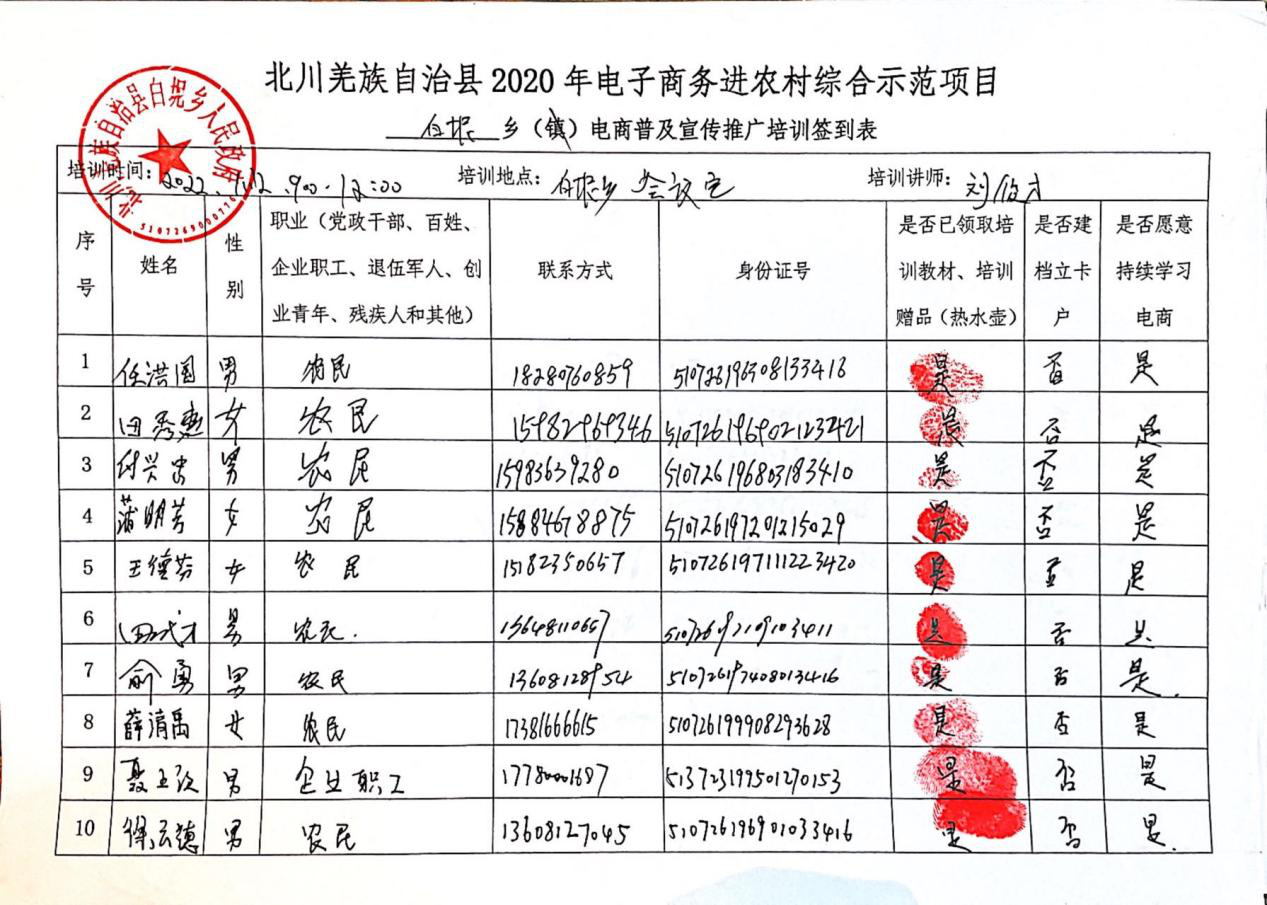 北川羌族自治县 2020 年电子商务进农村综合示范项目
白坭 乡（镇）电商普及宣传推广培训签到表
北川羌族自治县白坭乡人民政府
培训时间：2022.1.12 .9:00-12:00 培训地点：白坭乡会议室 培训讲师：刘俊才
序号 姓名 性别 职业（党政干部、百姓、企业职工、退伍军人、创业青年、残疾人和其他） 联系方式 身份证号 是否已领取培训教材、培训赠品（热水壶） 是否建档立卡户 是否愿意持续学习电商
1 任洪国 男 农民 18280760859 510726196308133416 是 否 是
2 田秀 女 农民 15982969346 510726196902123421 是 否 是
3 付兴 男 农民 15983639280 510726196803183410 是 否 是
4 蒲明芳 女 农民 15884678875 510726197201215029 是 否 是
5 王德芬 女 农民 15182350657 510726197111223420 是 否 是
6 田 才 男 农民. 13648110657 510726197109103411 是 否 是
7 俞勇 男 农民 13608128954 510726197408013416 是 否 是.
8 薛清禹 女 农民 17381666615 510726199908293628 是 否 是
9 聂 男 企业职工 17780001687 513723199501270153 是 否 是
10 徐云德 男 农民 13608127045 510726196901033416 是 否 是.